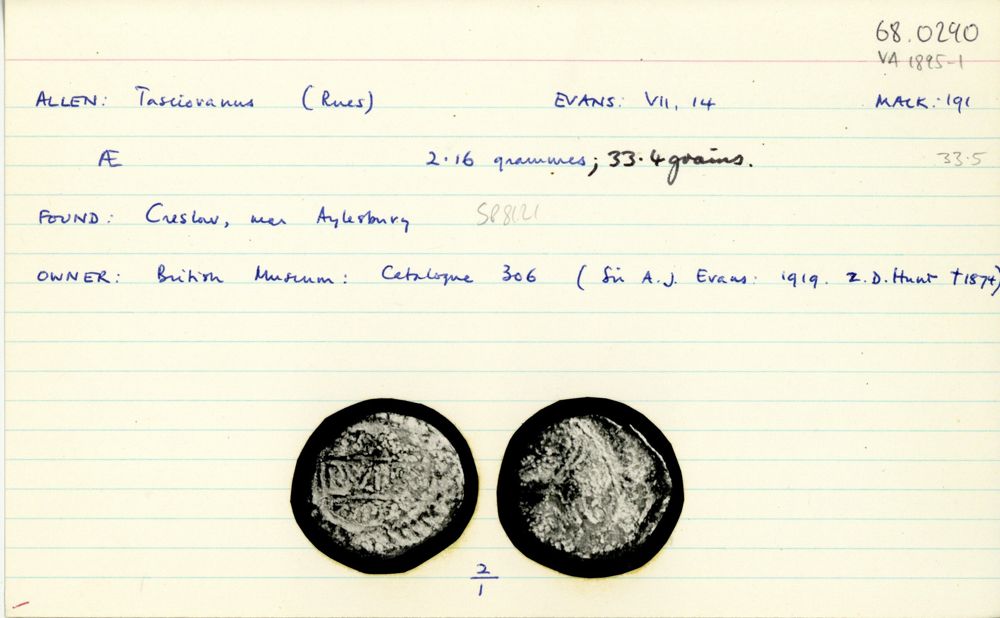 68.0290
VA 1895-1
ALLEN: Tasciovanus (Rues) EVANS: VII, 14 MACK: 191
Æ 2.16 grammes; 33.4 grains. 33.5
FOUND: Creslow, near Aylesbury SP8121
OWNER: British Museum: Catalogue 306 (Sir A.J. Evans: 1919. Z.D. Hunt †1874)
2
1